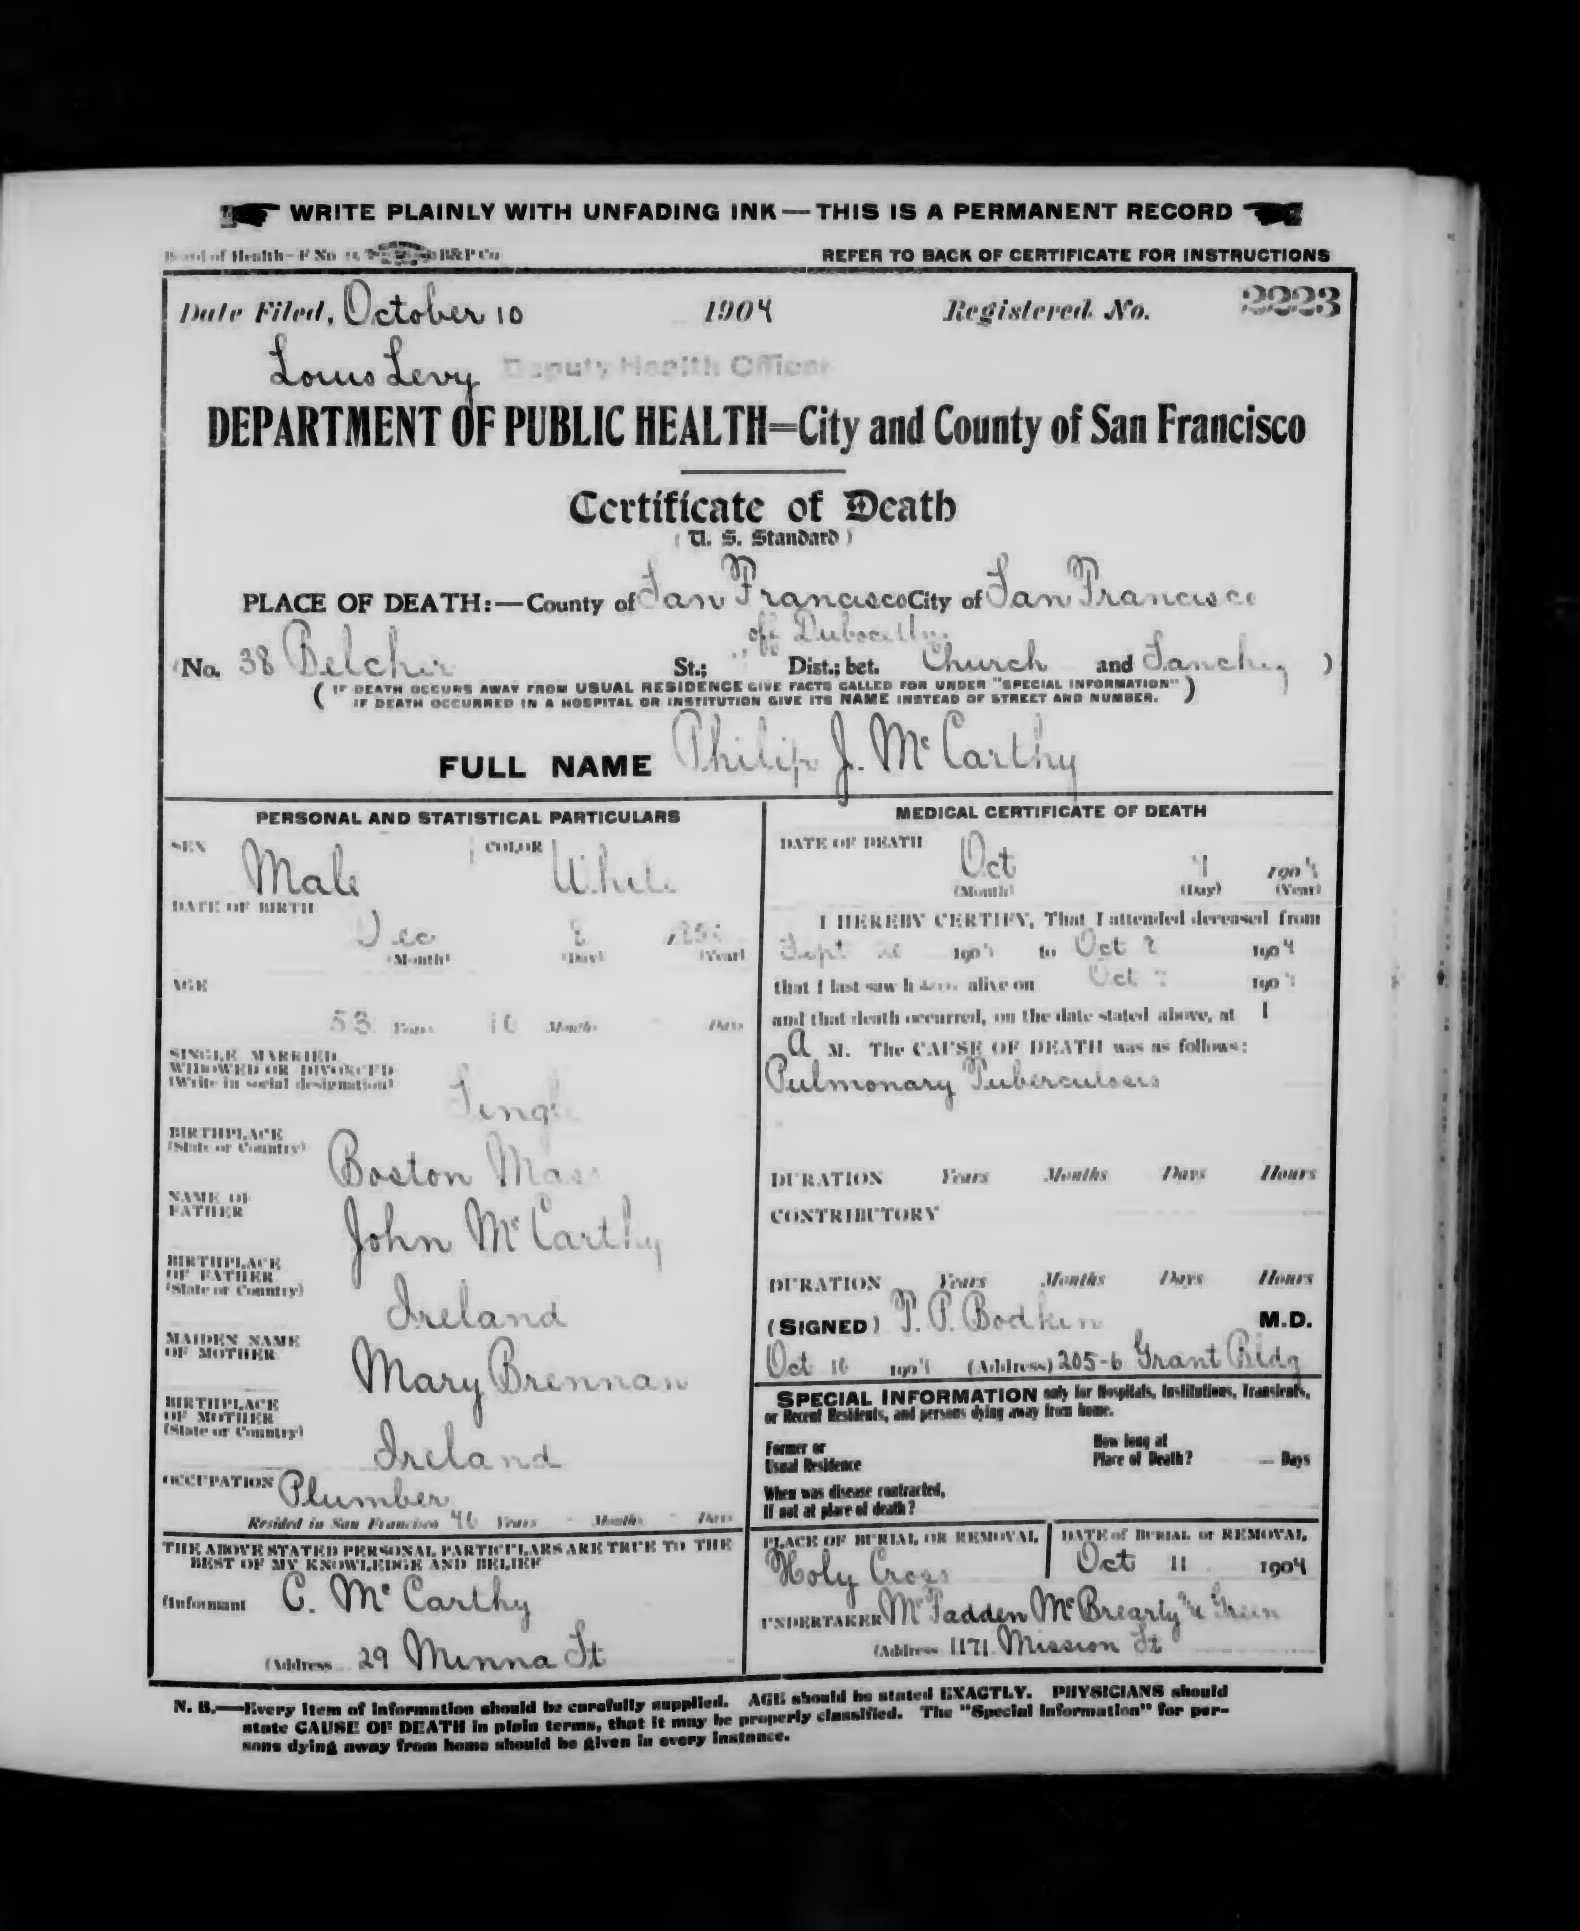 WRITE PLAINLY WITH UNFADING INK — THIS IS A PERMANENT RECORD
Board of Health—F No B&P Co REFER TO BACK OF CERTIFICATE FOR INSTRUCTIONS
Date Filed, October 10 1904 Registered No. 2223
Louis Levy Deputy Health Officer
DEPARTMENT OF PUBLIC HEALTH=City and County of San Francisco
Certificate of Death
(U. S. Standard)
PLACE OF DEATH:—County of San Francisco City of San Francisco
off Duboce
(No. 38 Belcher St.; Dist.; bet. Church and Sanchez )
( IF DEATH OCCURS AWAY FROM USUAL RESIDENCE GIVE FACTS CALLED FOR UNDER "SPECIAL INFORMATION" )
IF DEATH OCCURRED IN A HOSPITAL OR INSTITUTION GIVE ITS NAME INSTEAD OF STREET AND NUMBER.
FULL NAME Philip J. McCarthy
PERSONAL AND STATISTICAL PARTICULARS
SEX Male COLOR White
DATE OF BIRTH
Dec 8
(Month) (Day) (Year)
AGE
53 Years 10 Months Days
SINGLE MARRIED
WIDOWED OR DIVORCED
(Write in social designation)
Single
BIRTHPLACE
(State or Country)
Boston Mass
NAME OF
FATHER
John McCarthy
BIRTHPLACE
OF FATHER
(State or Country)
Ireland
MAIDEN NAME
OF MOTHER
Mary Brennan
BIRTHPLACE
OF MOTHER
(State or Country)
Ireland
OCCUPATION Plumber
Resided in San Francisco 46 Years Months Days
THE ABOVE STATED PERSONAL PARTICULARS ARE TRUE TO THE
BEST OF MY KNOWLEDGE AND BELIEF
(Informant C. McCarthy
(Address 29 Minna St
MEDICAL CERTIFICATE OF DEATH
DATE OF DEATH
Oct 9 1904
(Month) (Day) (Year)
I HEREBY CERTIFY, That I attended deceased from
Sept 1904 to Oct 8 1904
that I last saw h alive on Oct 1904
and that death occurred, on the date stated above, at 1
A M. The CAUSE OF DEATH was as follows:
Pulmonary Tuberculosis
DURATION Years Months Days Hours
CONTRIBUTORY
DURATION Years Months Days Hours
(SIGNED) T. P. Bodkin M.D.
Oct 10 1904 (Address) 205-6 Grant Bldg
SPECIAL INFORMATION only for Hospitals, Institutions, Transients,
or Recent Residents, and persons dying away from home.
Former or
Usual Residence
How long at
Place of Death? Days
When was disease contracted,
If not at place of death?
PLACE OF BURIAL OR REMOVAL
Holy Cross
DATE of BURIAL or REMOVAL
Oct 11 1904
UNDERTAKER McFadden McBrearty & Green
(Address 1171 Mission St
N. B.—Every Item of information should be carefully supplied. AGE should be stated EXACTLY. PHYSICIANS should
state CAUSE OF DEATH in plain terms, that it may be properly classified. The "Special Information" for per-
sons dying away from home should be given in every instance.